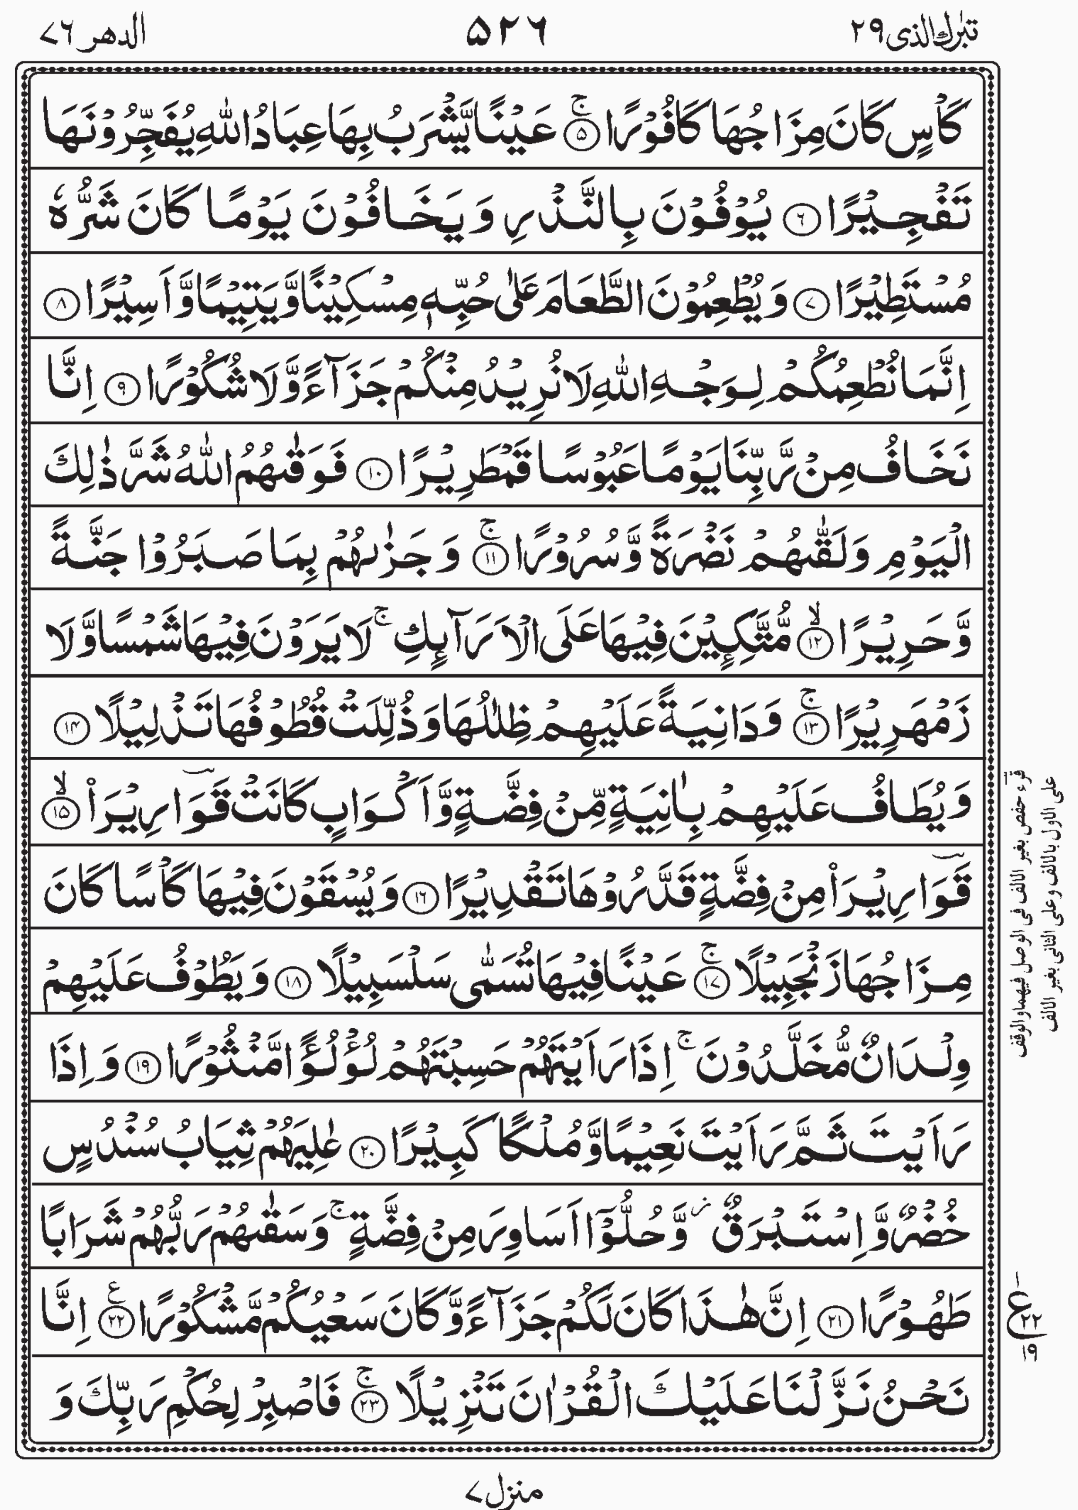 تبٰرك الذی ٢٩
۵۲۶
الدهر ٧٦
كَاۡسٍ كَانَ مِزَاجُهَا كَافُوۡرًا ۚ‏﴿۵﴾ عَيۡنًا يَّشۡرَبُ بِهَا عِبَادُ اللّٰهِ يُفَجِّرُوۡنَهَا
تَفۡجِيۡرًا ﴿۶﴾ يُوۡفُوۡنَ بِالنَّذۡرِ وَ يَخَافُوۡنَ يَوۡمًا كَانَ شَرُّهٗ
مُسۡتَطِيۡرًا ﴿۷﴾ وَ يُطۡعِمُوۡنَ الطَّعَامَ عَلٰى حُبِّهٖ مِسۡكِيۡنًا وَّ يَتِيۡمًا وَّ اَسِيۡرًا ﴿۸﴾
اِنَّمَا نُطۡعِمُكُمۡ لِوَجۡهِ اللّٰهِ لَا نُرِيۡدُ مِنۡكُمۡ جَزَآءً وَّ لَا شُكُوۡرًا ﴿۹﴾ اِنَّا
نَخَافُ مِنۡ رَّبِّنَا يَوۡمًا عَبُوۡسًا قَمۡطَرِيۡرًا ﴿۱۰﴾ فَوَقٰٮهُمُ اللّٰهُ شَرَّ ذٰلِكَ
الۡيَوۡمِ وَ لَقّٰٮهُمۡ نَضۡرَةً وَّ سُرُوۡرًا ۚ‏﴿۱۱﴾ وَ جَزٰٮهُمۡ بِمَا صَبَرُوۡا جَنَّةً
وَّ حَرِيۡرًا ۙ‏﴿۱۲﴾ مُّتَّكِـِٕيۡنَ فِيۡهَا عَلَى الۡاَرَآٮِٕكِ ۚ لَا يَرَوۡنَ فِيۡهَا شَمۡسًا وَّ لَا
زَمۡهَرِيۡرًا ۚ‏﴿۱۳﴾ وَ دَانِيَةً عَلَيۡهِمۡ ظِلٰلُهَا وَ ذُلِّلَتۡ قُطُوۡفُهَا تَذۡلِيۡلًا ﴿۱۴﴾
وَ يُطَافُ عَلَيۡهِمۡ بِاٰنِيَةٍ مِّنۡ فِضَّةٍ وَّ اَكۡوَابٍ كَانَتۡ قَوَارِيۡرَا۟ ۙ‏﴿۱۵﴾
قَوَارِيۡرَا۟ مِنۡ فِضَّةٍ قَدَّرُوۡهَا تَقۡدِيۡرًا ﴿۱۶﴾ وَ يُسۡقَوۡنَ فِيۡهَا كَاۡسًا كَانَ
مِزَاجُهَا زَنۡجَبِيۡلًا ۚ‏﴿۱۷﴾ عَيۡنًا فِيۡهَا تُسَمّٰى سَلۡسَبِيۡلًا ﴿۱۸﴾ وَ يَطُوۡفُ عَلَيۡهِمۡ
وِلۡدَانٌ مُّخَلَّدُوۡنَ ۚ اِذَا رَاَيۡتَهُمۡ حَسِبۡتَهُمۡ لُؤۡلُؤًا مَّنۡثُوۡرًا ﴿۱۹﴾ وَ اِذَا
رَاَيۡتَ ثَمَّ رَاَيۡتَ نَعِيۡمًا وَّ مُلۡكًا كَبِيۡرًا ﴿۲۰﴾ عٰلِيَهُمۡ ثِيَابُ سُنۡدُسٍ
خُضۡرٌ وَّ اِسۡتَبۡرَقٌ ۫ وَّ حُلُّوۡۤا اَسَاوِرَ مِنۡ فِضَّةٍ ۚ وَ سَقٰٮهُمۡ رَبُّهُمۡ شَرَابًا
طَهُوۡرًا ﴿۲۱﴾ اِنَّ هٰذَا كَانَ لَكُمۡ جَزَآءً وَّ كَانَ سَعۡيُكُمۡ مَّشۡكُوۡرًا ﴿۲۲﴾ ع اِنَّا
نَحۡنُ نَزَّلۡنَا عَلَيۡكَ الۡقُرۡاٰنَ تَنۡزِيۡلًا ۚ‏﴿۲۳﴾ فَاصۡبِرۡ لِحُكۡمِ رَبِّكَ وَ
قرء حفص بغير الالف فى الوصل فيهما و الوقف
على الاول بالالف و على الثانى بغير الالف
ع ٢٢
منزل ٧